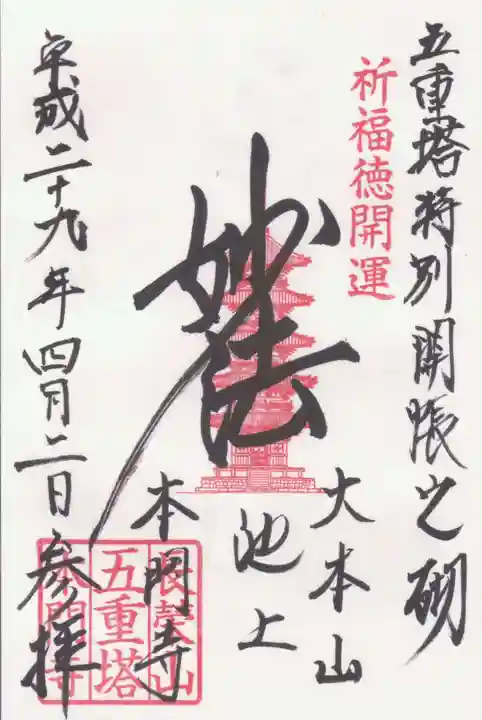 五重塔特別開帳之砌
祈福徳開運
大本山
池上
本門寺
妙法
平成二十九年四月二日参拝
長榮山
五重塔
本門寺